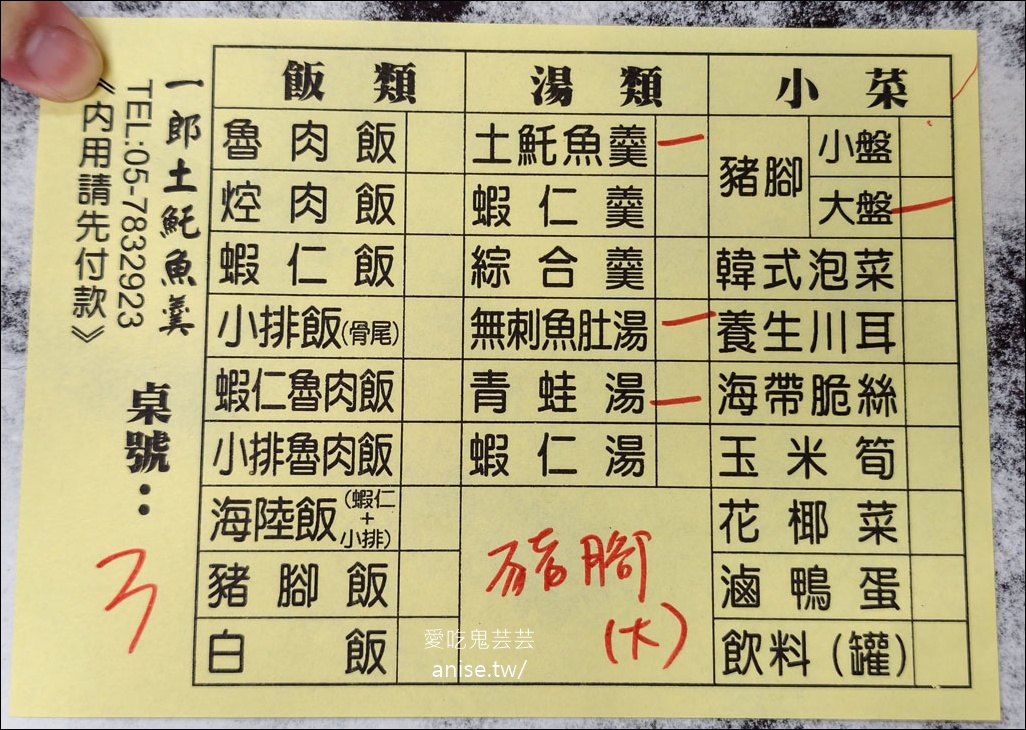 一郎土魠魚羹
TEL:05-7832923
《內用請先付款》
桌號：
3
飯類
魯肉飯
焢肉飯
蝦仁飯
小排飯(骨尾)
蝦仁魯肉飯
小排魯肉飯
海陸飯(蝦仁+小排)
豬腳飯
白飯
湯類
土魠魚羹 一
蝦仁羹
綜合羹
無刺魚肚湯 一
青蛙湯 一
蝦仁湯
豬腳
(大)
小菜
豬腳
小盤
大盤 一
韓式泡菜
養生川耳
海帶脆絲
玉米筍
花椰菜
滷鴨蛋
飲料(罐)
愛吃鬼芸芸
anise.tw/